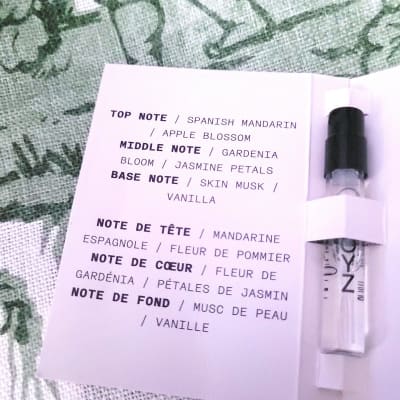 TOP NOTE / SPANISH MANDARIN
/ APPLE BLOSSOM
MIDDLE NOTE / GARDENIA
BLOOM / JASMINE PETALS
BASE NOTE / SKIN MUSK /
VANILLA
NOTE DE TÊTE / MANDARINE
ESPAGNOLE / FLEUR DE POMMIER
NOTE DE CŒUR / FLEUR DE
GARDÉNIA / PÉTALES DE JASMIN
NOTE DE FOND / MUSC DE PEAU
/ VANILLE